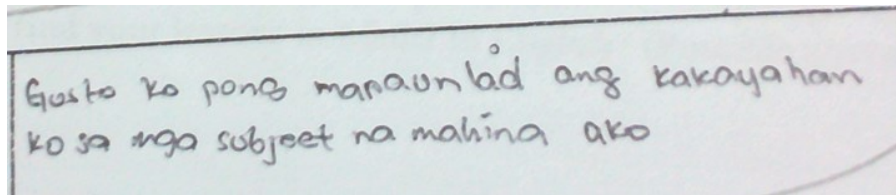 Gusto ko pong mapaunlad ang kakayahan
ko sa mga subject na mahina ako